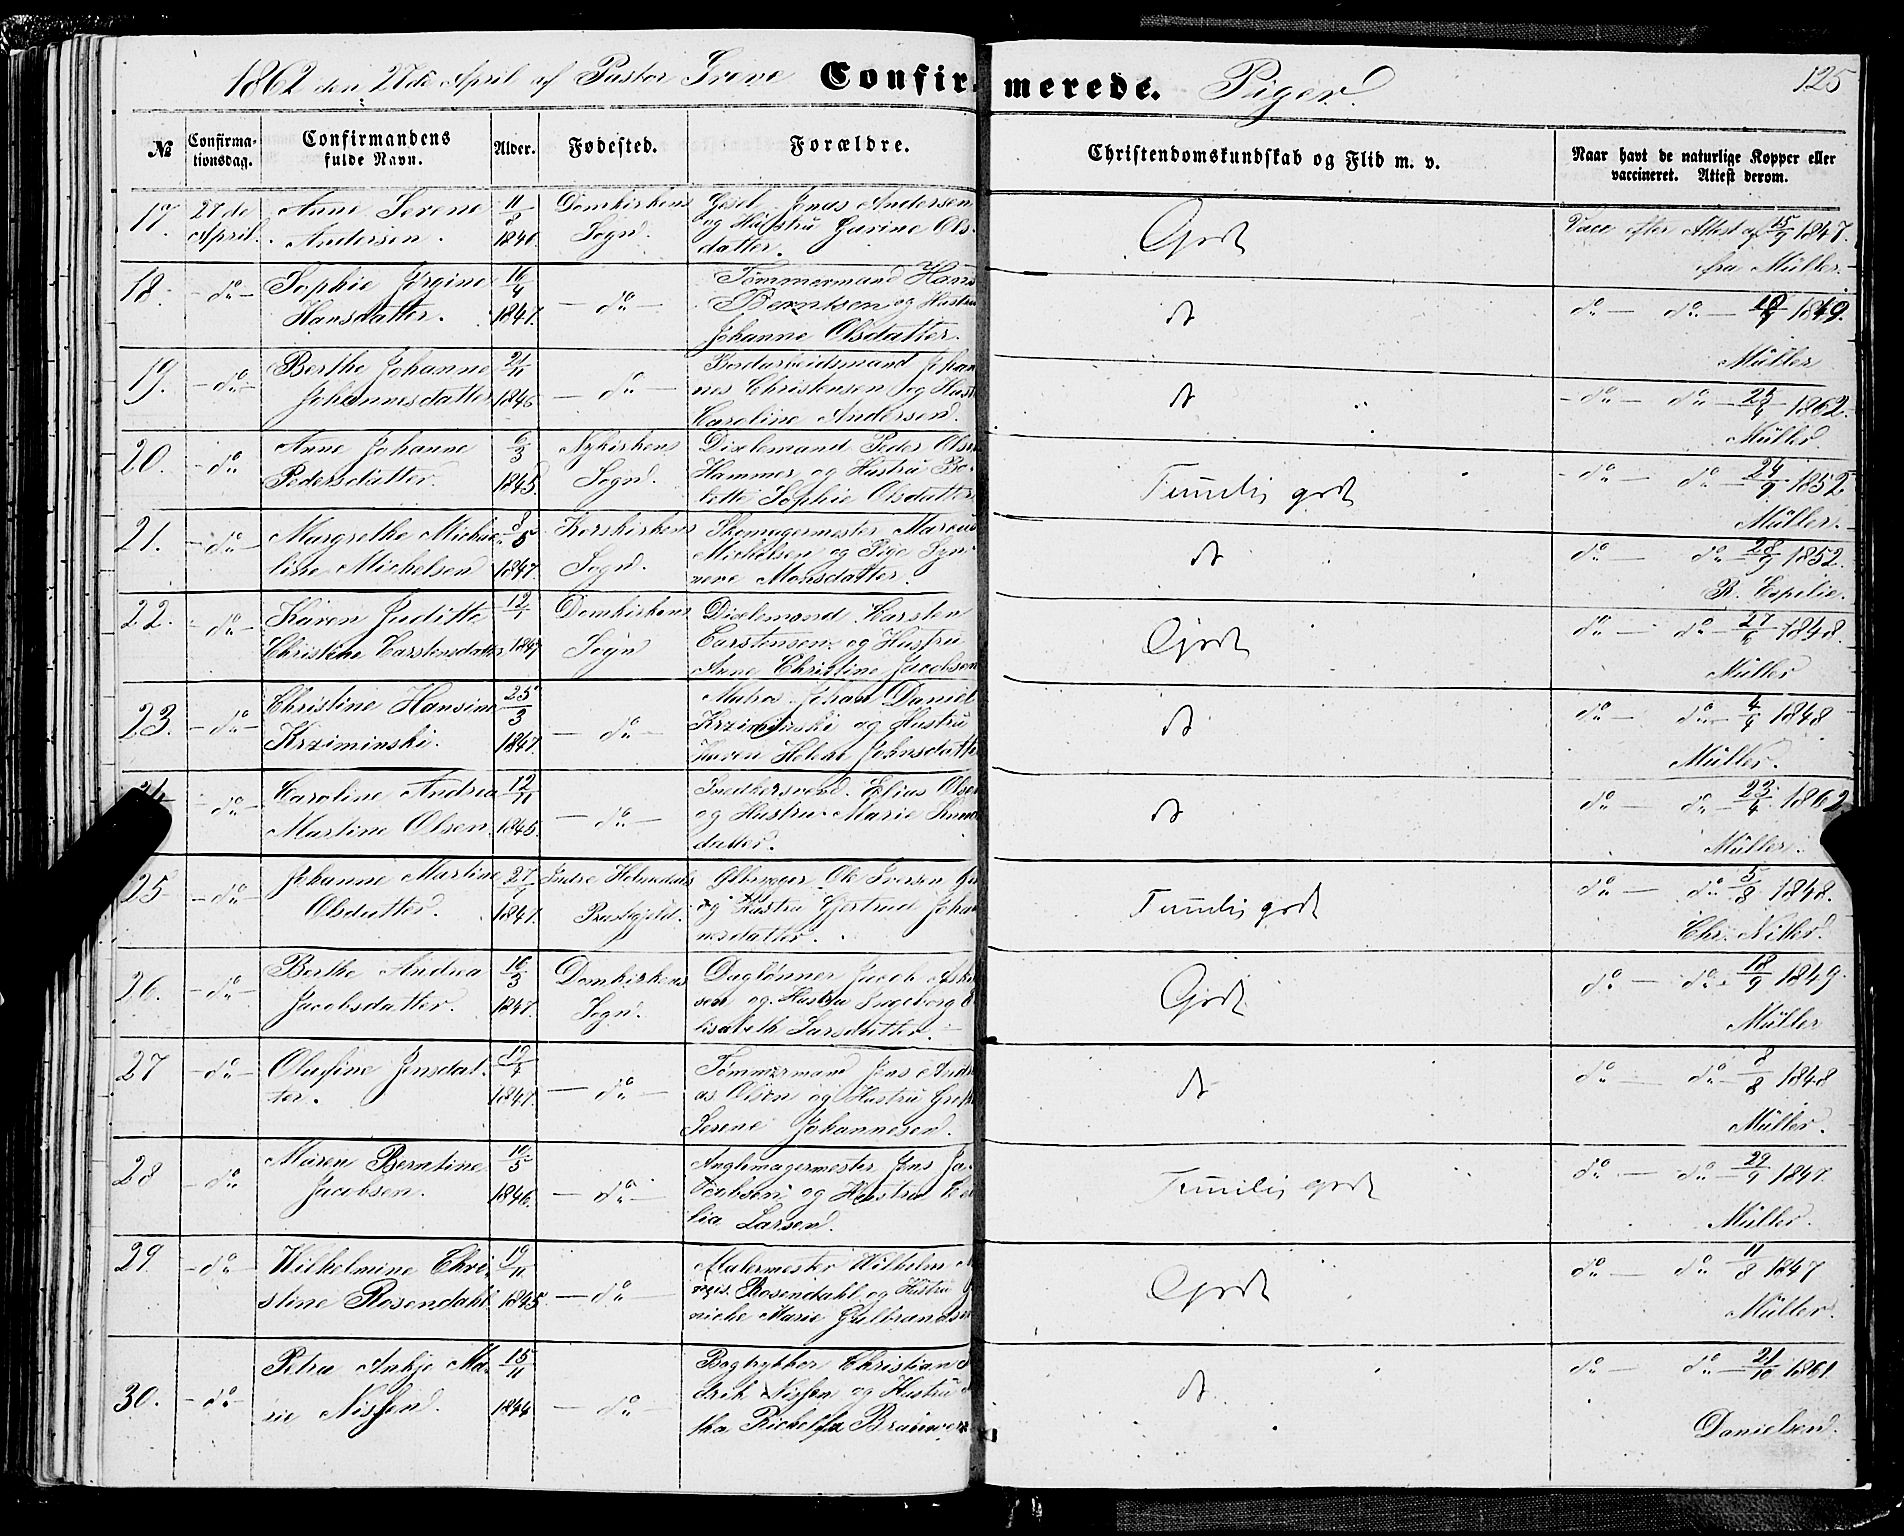 1862 den 27de April af Pastor Greve Confirmerede. Piger.
125
№
Confirma-
tionsdag.
Confirmandens
fulde Navn.
Alder.
Fødested.
Forældre.
Christendomskundskab og Flid m. v.
Naar havt de naturlige Kopper eller
vaccineret. Attest derom.
17. 27de Anne Serene 11 Domkirkens Gesel Jens Andersen
April. Andersen. 8 Sogn. og Hustru Gurine Ols-
datter. Godt Vacc. efter Attest af 15/9 1847.
fra Müller.
18. do Sophie Jørgine 16/4 do Tømmermand Hans
Hansdatter. 1847. Berntsen og Hustru
Johanne Olsdatter. dt do do 1849.
Müller
19. do Berthe Johanne 21/11 do Bordarbeidsmand Johan
Johannesdatter 1846 nes Christensen og Hust
Caroline Andersen. dt do do 1862.
Müller
20. do Anne Johanne 6/3 Nykirkens Dixlemand Peder Olsen
Pedersdatter. 1845 Sogn. Hammer og Hustru Bo-
lette Sophie Olsdatter Temelig godt do do 24/9 1852
Müller.
21. do Margrethe Michae 8/5 Korskirkens Skomagermester Marcus
line Michelsen 1847. Sogn. Michelsen og Pige Syn-
neve Monsdatter. dt do do 28/9 1852.
R. Espelie.
22. do Karen Juditte 12 Domkirkens Dixlemand Carsten
Christine Carstensdatter 1847 Sogn Carstensen og Hustru
Anne Christine Jacobsen Godt do do 27 1848.
Müller
23. do Christine Hansine 25/3 do Matros Johan Daniel
Krziminski. 1847. Krziminski og Hustru
Karen Helene Johnsdatter dt do do 4/9 1848
Müller.
24 do Caroline Andrea 12/11 do Snedkersvend Elias Olsen
Martine Olsen. 1845. og Hustru Marie Knud
datter. dt do do 23/4 1862
Müller.
25 do Johanne Martine 27 Indre Holmedals Ole Iversen
Olsdatter. 1847. Præstegjeld. og Hustru Gjertrud Johan
nesdatter. Temelig godt do do 5/8 1848.
Chr. Nitter.
26. do Berthe Andrea 16/3 Domkirkens Daglønner Jacob Aske
Jacobsdatter. 1847. Sogn. sen og Hustru Ingeborg E
lisabeth Larsdatter. Godt do do 18/9 1849.
Müller
27 do Olufine Jensdat- do Tømmermand Jens Andre
ter. 1847. as Olsen og Hustru Grethe
Serene Johannesen. dt do do 8/8 1848
Müller.
28 do Maren Berntine 10/5 do Anglemagermester Jens Ja-
Jacobsen. 1846. cobsen og Hustru
lia Larsen. Temelig godt do do 29/9 1847.
Müller.
29 do Wilhelmine Chri- 19/11 do Malermester Wilhelm
stine Rosendahl 1845 Rosendahl og Hustru
niche Marie Gulbrandsen Godt do do 11/8 1847
Müller
30. do Petra Antje Ma- 15/11 do Bogtrykker Christian
rie Nissen. 1844 drik Nissen og Hustru
tha Richelsa dt do do 21/10 1861.
Danielsen.